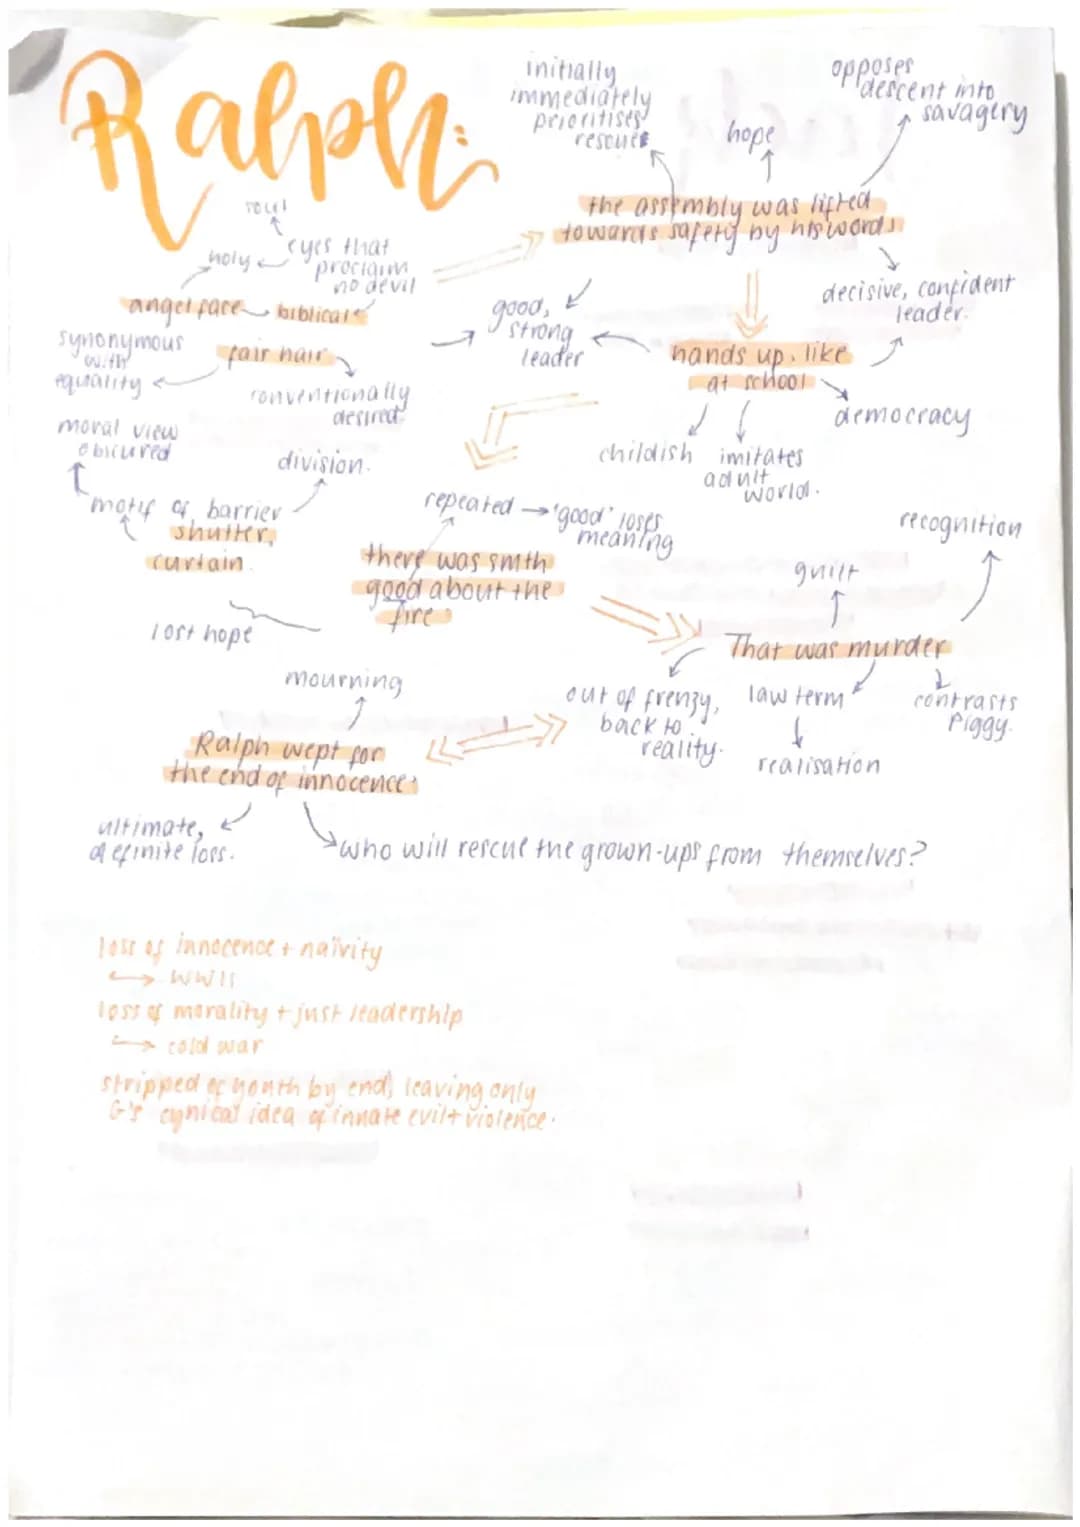 Ralph:
initially
immediately
prioritises
rescue
hope
opposes
descent into
savagery
the assembly was lifted
towards safety by his words
decisive, confident
leader.
good,
strong
leader
soul
holy
eyes that
proclaim
no devil
angel face
biblical
fair hair
synonymous
with
equality
conventionally
desired
hands up, like
at school
democracy
childish
imitates
adult
world.
moral view
obscured
division.
motif of barrier
shutter,
curtain.
lost hope
repeated → 'good' loses
meaning
there was smth
good about the
fire
recognition
guilt
That was murder
out of frenzy,
back to
reality.
law term
realisation
contrasts
Piggy.
mourning
Ralph wept for
the end of innocence
ultimate,
definite loss.
who will rescue the grown-ups from themselves?
loss of innocence + naivity
↔ WWII
loss of morality + just leadership
↔ cold war
stripped of youth by end, leaving only
G's cynical idea of innate evil + violence.